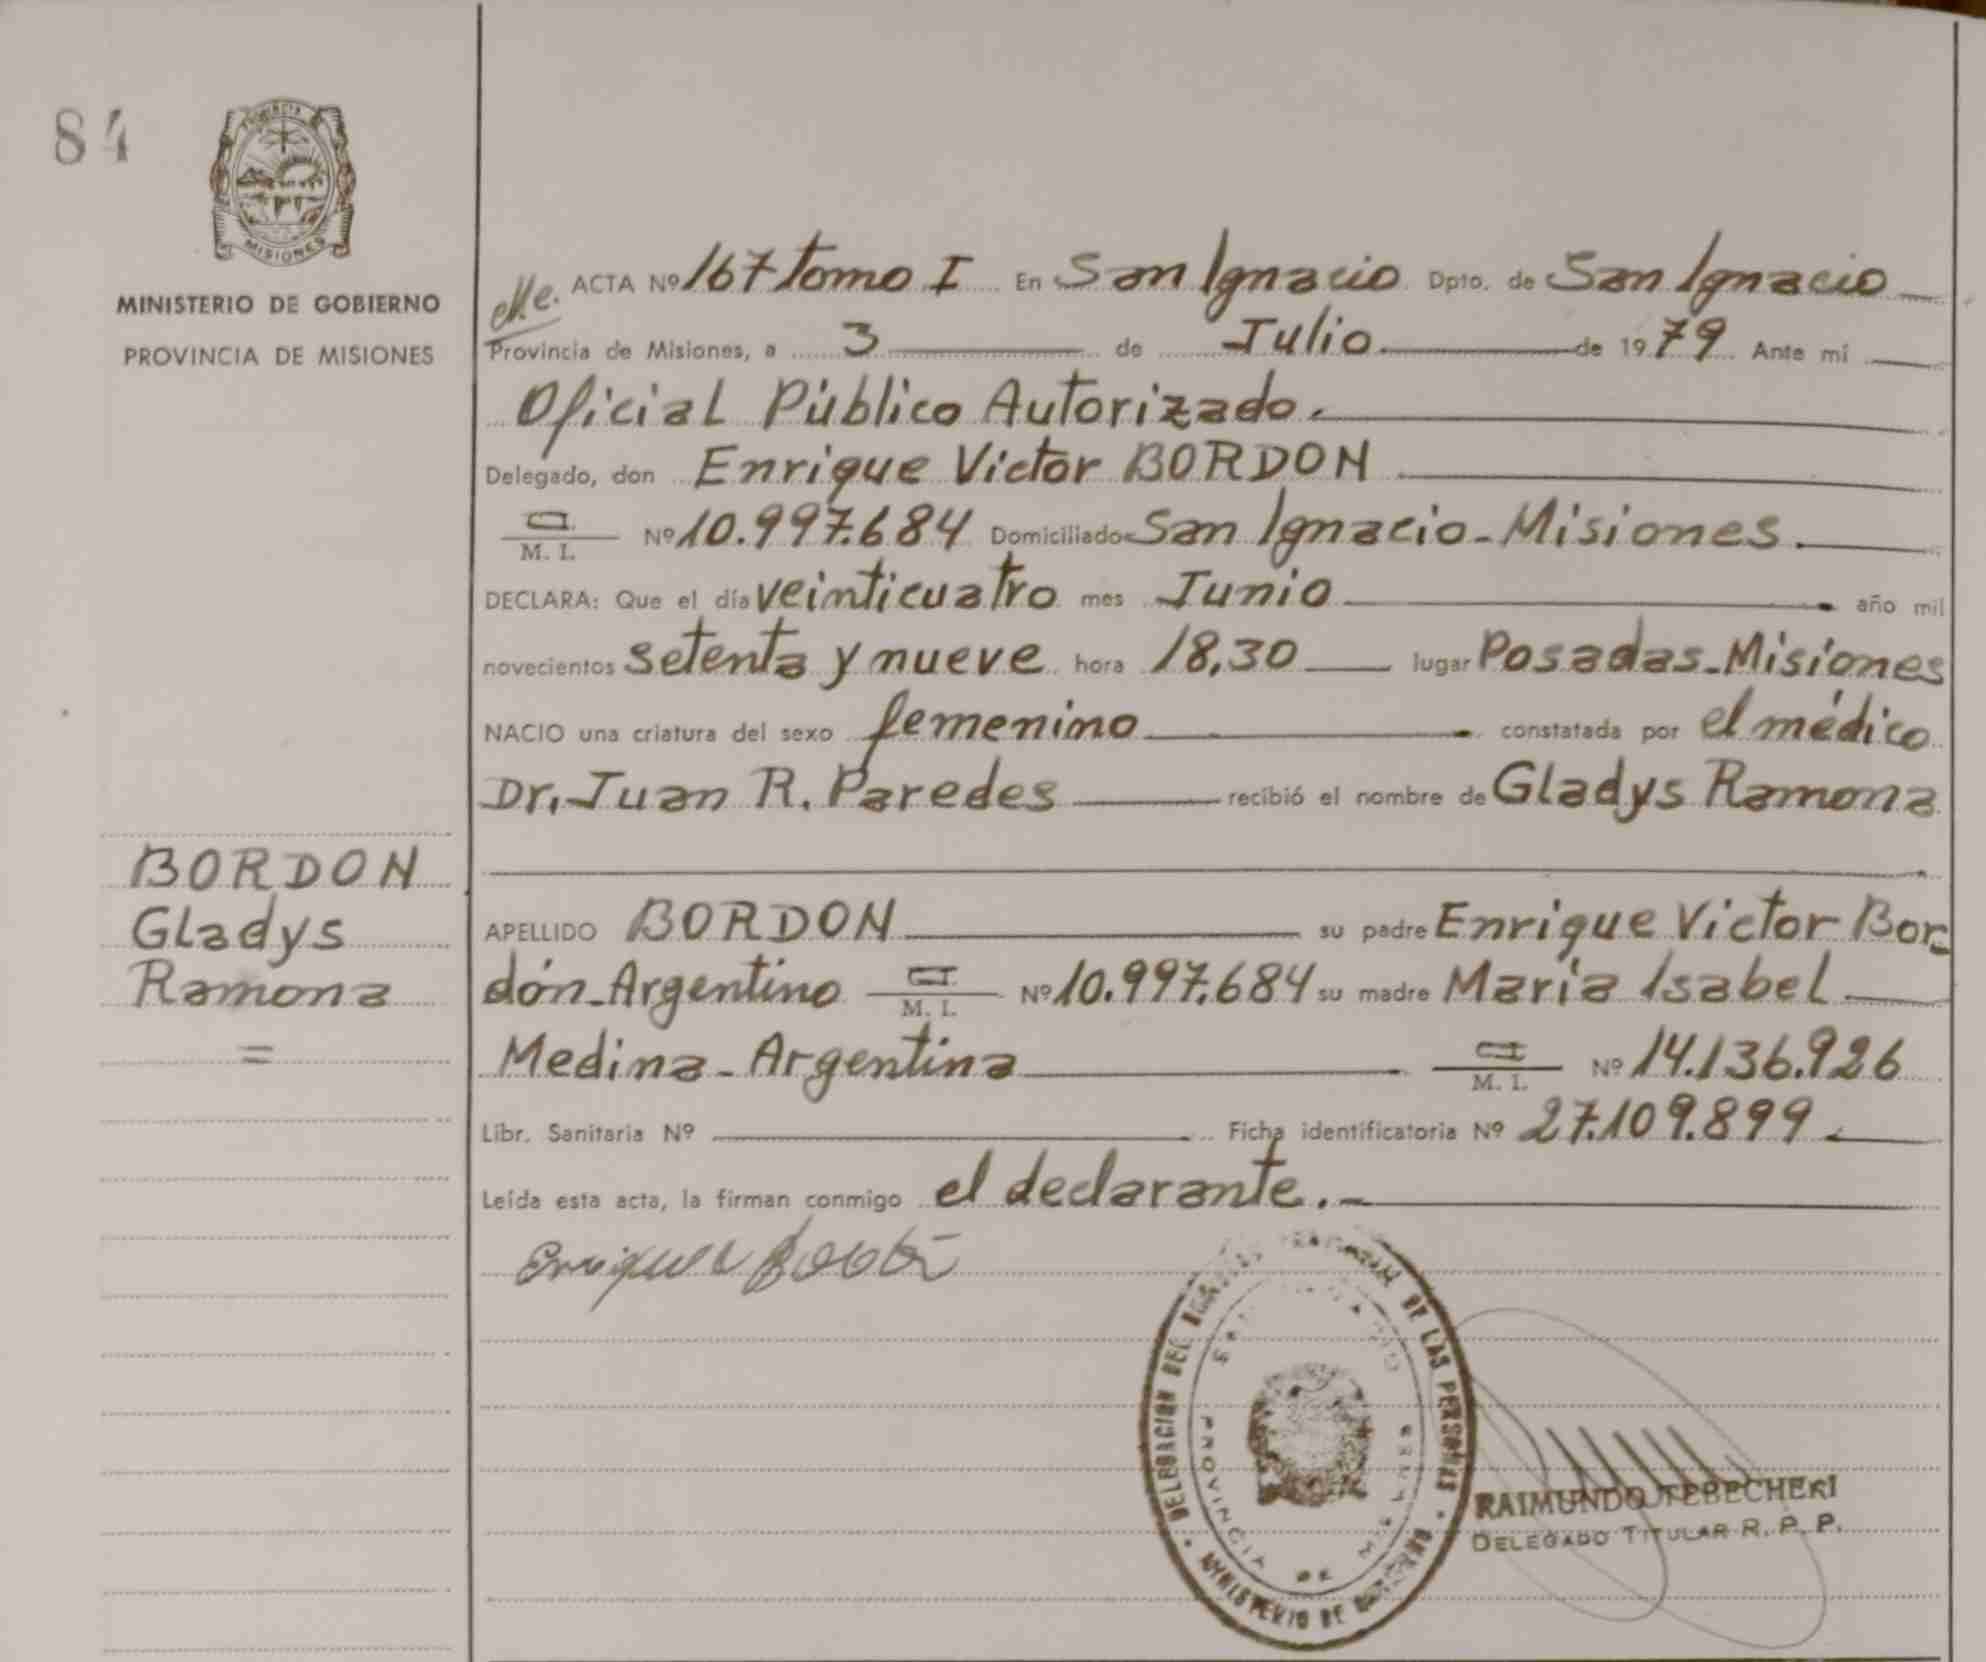 84
PROVINCIA
MISIONES
MINISTERIO DE GOBIERNO
PROVINCIA DE MISIONES
ACTA Nº 167 tomo I En San Ignacio Dpto. de San Ignacio
Provincia de Misiones, a 3 de Julio de 1979 Ante mi
Oficial Público Autorizado.
Delegado, don Enrique Victor BORDON
CI
M. I. Nº 10.997.684 Domiciliado San Ignacio-Misiones.
DECLARA: Que el día veinticuatro mes Junio año mil
novecientos setenta y nueve hora 18,30 lugar Posadas-Misiones
NACIO una criatura del sexo femenino constatada por el médico
Dr. Juan R. Paredes recibió el nombre de Gladys Ramona
BORDON
Gladys
Ramona
=
APELLIDO BORDON su padre Enrique Victor Bor-
dón-Argentino CI
M. I. Nº 10.997.684 su madre María Isabel
Medina-Argentina CI
M. I. Nº 14.136.926
Libr. Sanitaria Nº Ficha identificatoria Nº 27.109.899.
Leída esta acta, la firman conmigo el declarante.-
Enrique
DELEGACION DEL DE LAS PERSONAS
MINISTERIO DE GOBIERNO
PROVINCIA DE MISIONES
RAIMUNDO TEBECHERI
DELEGADO TITULAR R. P. P.